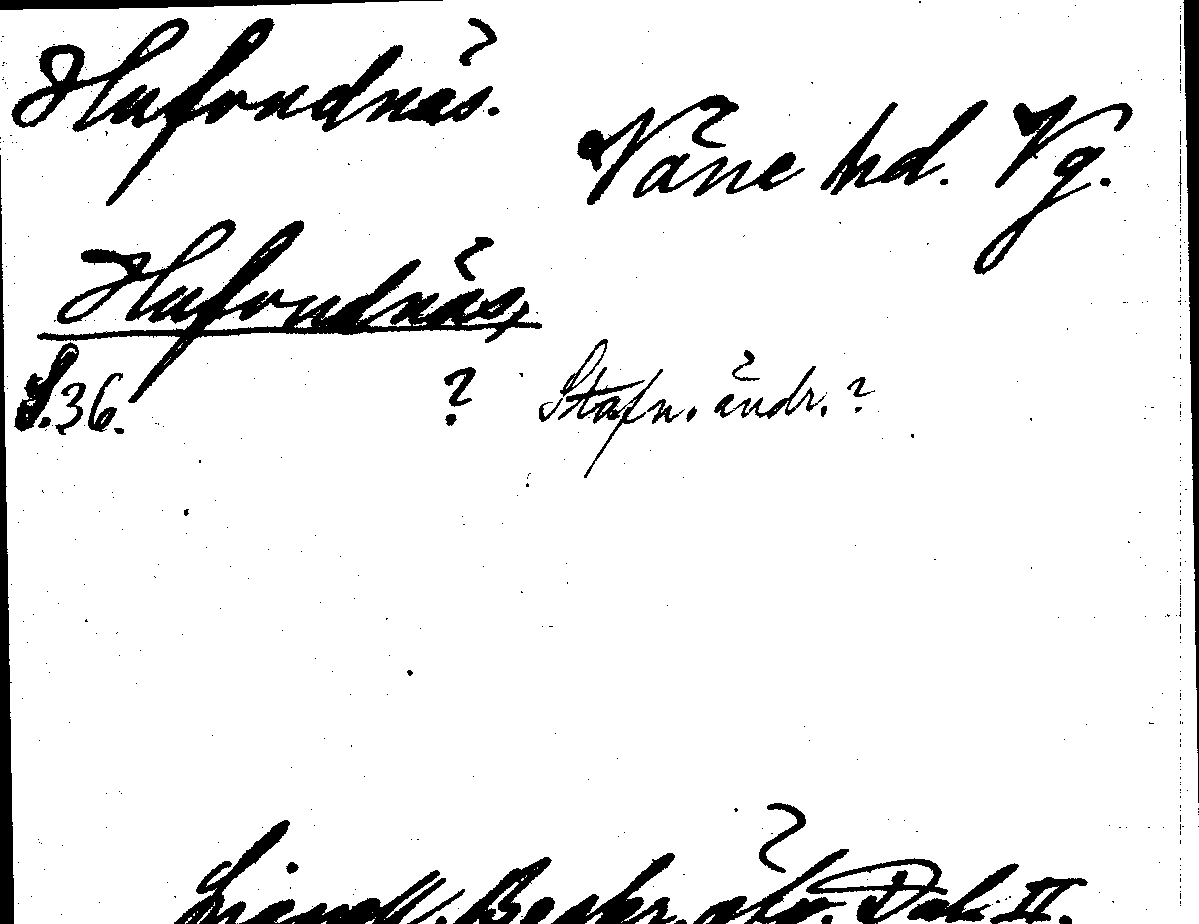 Hufvudnäs.
Väne hd. Vg.
Hufvudnäs,
S. 36. ? Stafn. ändr. ?
Lignell, Beskr. öfv. Dal. II.